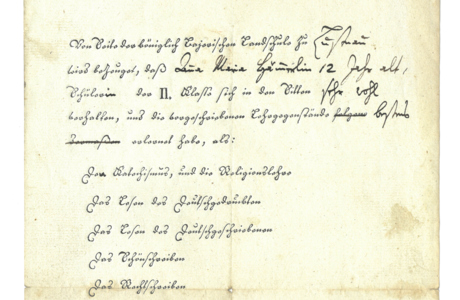 Von Seite der königlich Bajerischen Landschule zu
wird bezeuget, daß Ana Maria 12 Jahr alt,
Schülerin der II. Klasse sich in den Sitten sehr wohl
verhalten, und die vorgeschriebenen Lehrgegenstände folgend bestens
erlernet habe, als:
Der Katechismus, und die Religionslehre
Das Lesen des Deutschgedruckten
Das Lesen des Deutschgeschriebenen
Das Schönschreiben
Das Rechtschreiben